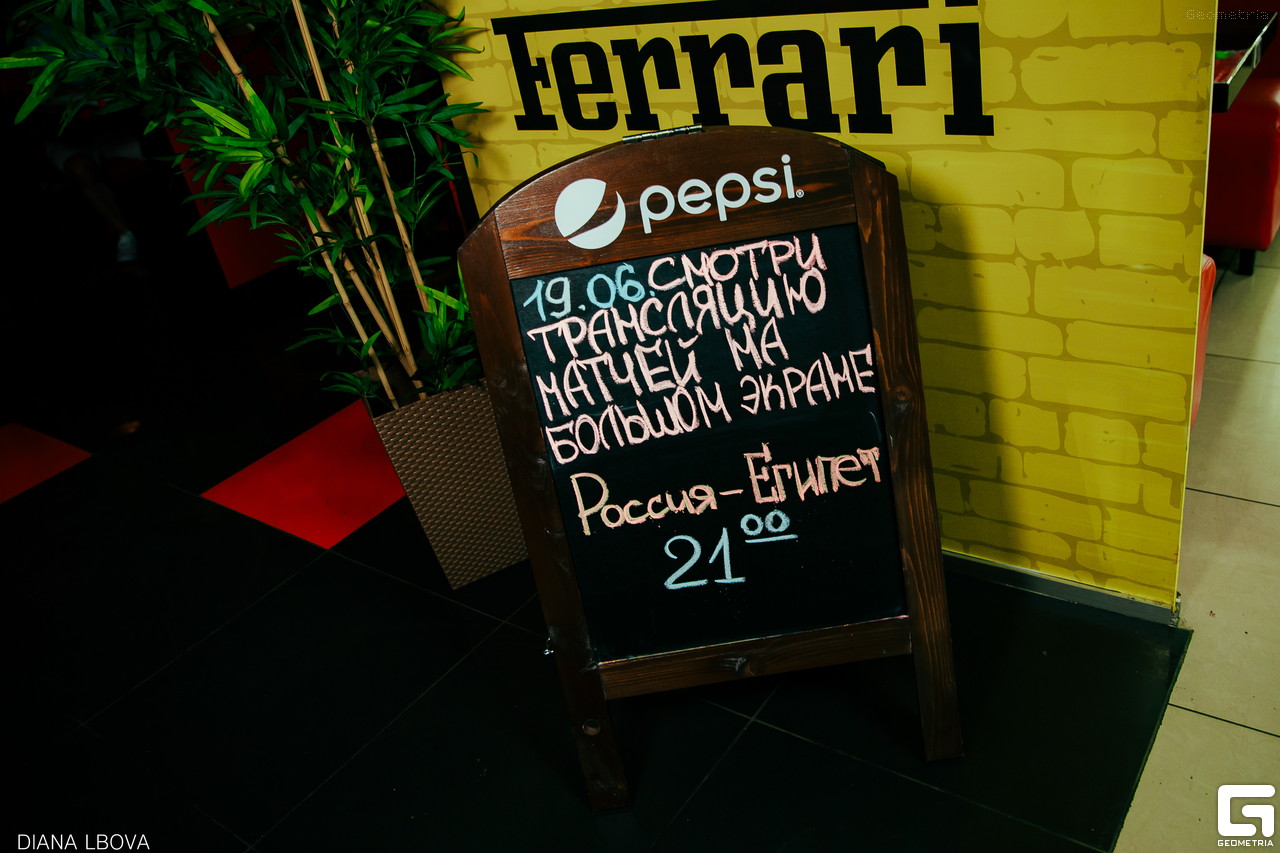 Geometria
Ferrari
pepsi®
19.06. СМОТРИ
ТРАНСЛЯЦИЮ
МАТЧЕЙ НА
БОЛЬШОМ ЭКРАНЕ
Россия – Египет
21⁰⁰
DIANA LBOVA
GEOMETRIA